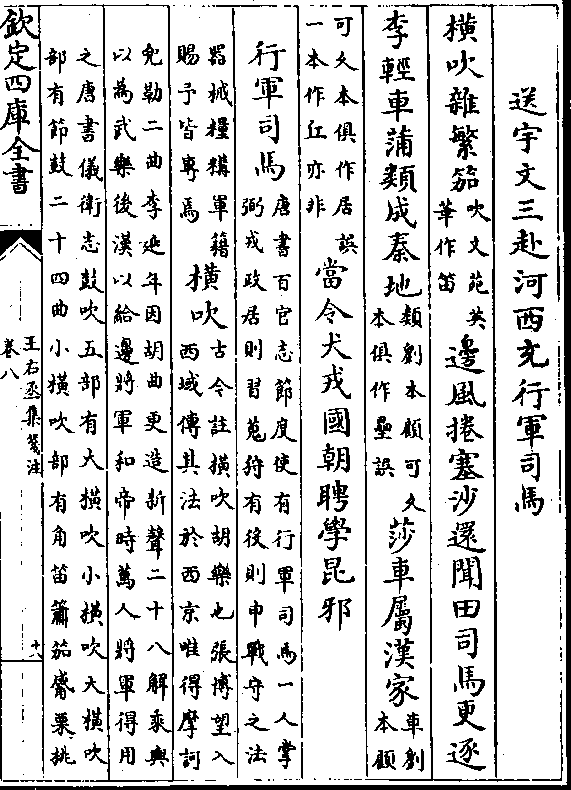 送宇文三赴河西充行軍司馬
橫吹雜繁笳吹文苑英華作笛邊風捲塞沙還聞田司馬更逐
李輕車蒲類成秦地類劉本顧可久本俱作壘誤莎車屬漢家車劉本顧
可久本俱作居誤一本作江亦非當令犬戎國朝聘學昆邪
行軍司馬唐書百官志節度使有行軍司馬一人掌弼戎政居則習蒐狩有役則申戰守之法
器械糧糒軍籍賜予皆專焉橫吹古今註橫吹胡樂也張博望入西域傳其法於西京唯得摩訶
兜勒二曲李延年因胡曲更造新聲二十八解乘輿
以為武樂後漢以給邊將軍和帝時萬人將軍得用
之唐書儀衛志鼓吹五部有大橫吹小橫吹大橫吹
部有節鼓二十四曲小橫吹部有角笛簫笳觱栗桃
欽定四庫全書
王右丞集箋注
卷八
十八